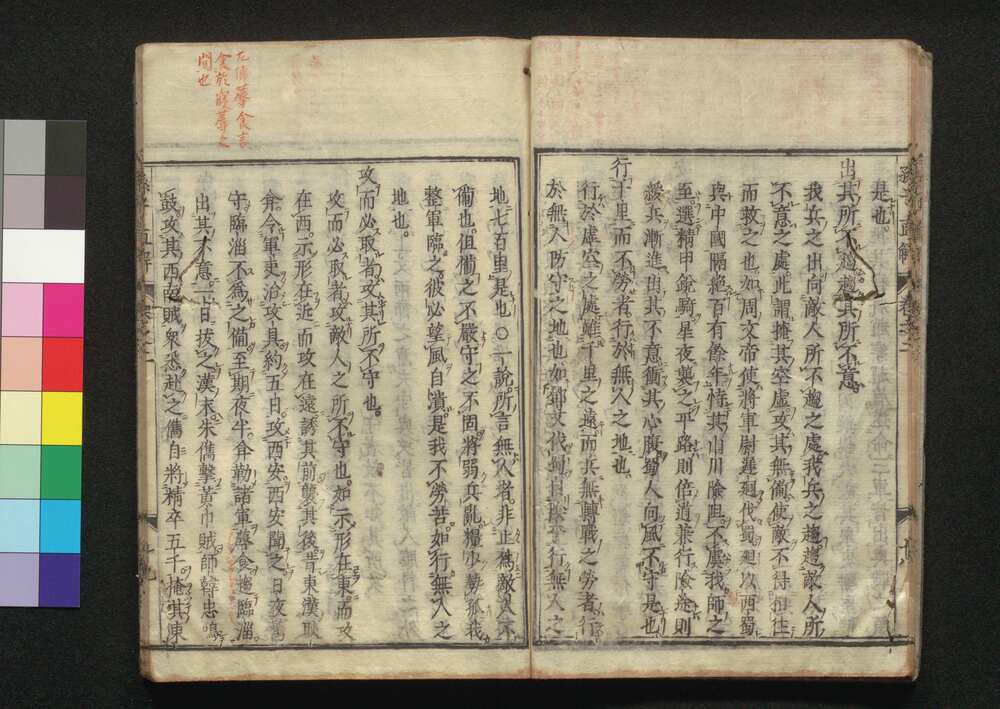 是也
出其所不趨趨其所不意
我兵之出向敵人所不趨之處我兵之趨趨敵人所
不意之處此謂掩其空虛攻其無備使敵不得相往
而救之也如周文帝使將軍尉遲迥伐蜀迥以西蜀
與中國隔絶百有餘年恃其山川險阻不虞我師之
至選精甲銳騎星夜襲之平路則倍道兼行險途則
緩兵漸進出其不意衝其心腹蜀人向風不守是也
行千里而不勞者行於無人之地也
行於虛空之處雖千里之遠而兵無轉戰之勞者行
於無人防守之地也如鄧艾伐蜀自陰平行無人之
地七百里是也○一說所言無人者非止為敵人不
備也但備之不嚴守之不固將弱兵亂糧少勢孤我
整軍臨之彼必望風自潰是我不勞苦如行無人之
地也
攻而必取者攻其所不守也
攻而必取者攻敵人之所不守也如示形在東而攻
在西示形在近而攻在遠誘其前襲其後昔東漢耿
弇令軍吏治攻具約五日攻西安西安聞之日夜為
守臨淄不為之備至期夜半弇勒諸軍蓐食趨臨淄
出其不意一日拔之漢末朱儁擊黃巾賊師韓忠鳴
鼓攻其西南賊衆悉赴之儁自將精卒五千掩其東
左傳蓐食言
食於寢蓐之
間也
孫子直解 卷之二
十八